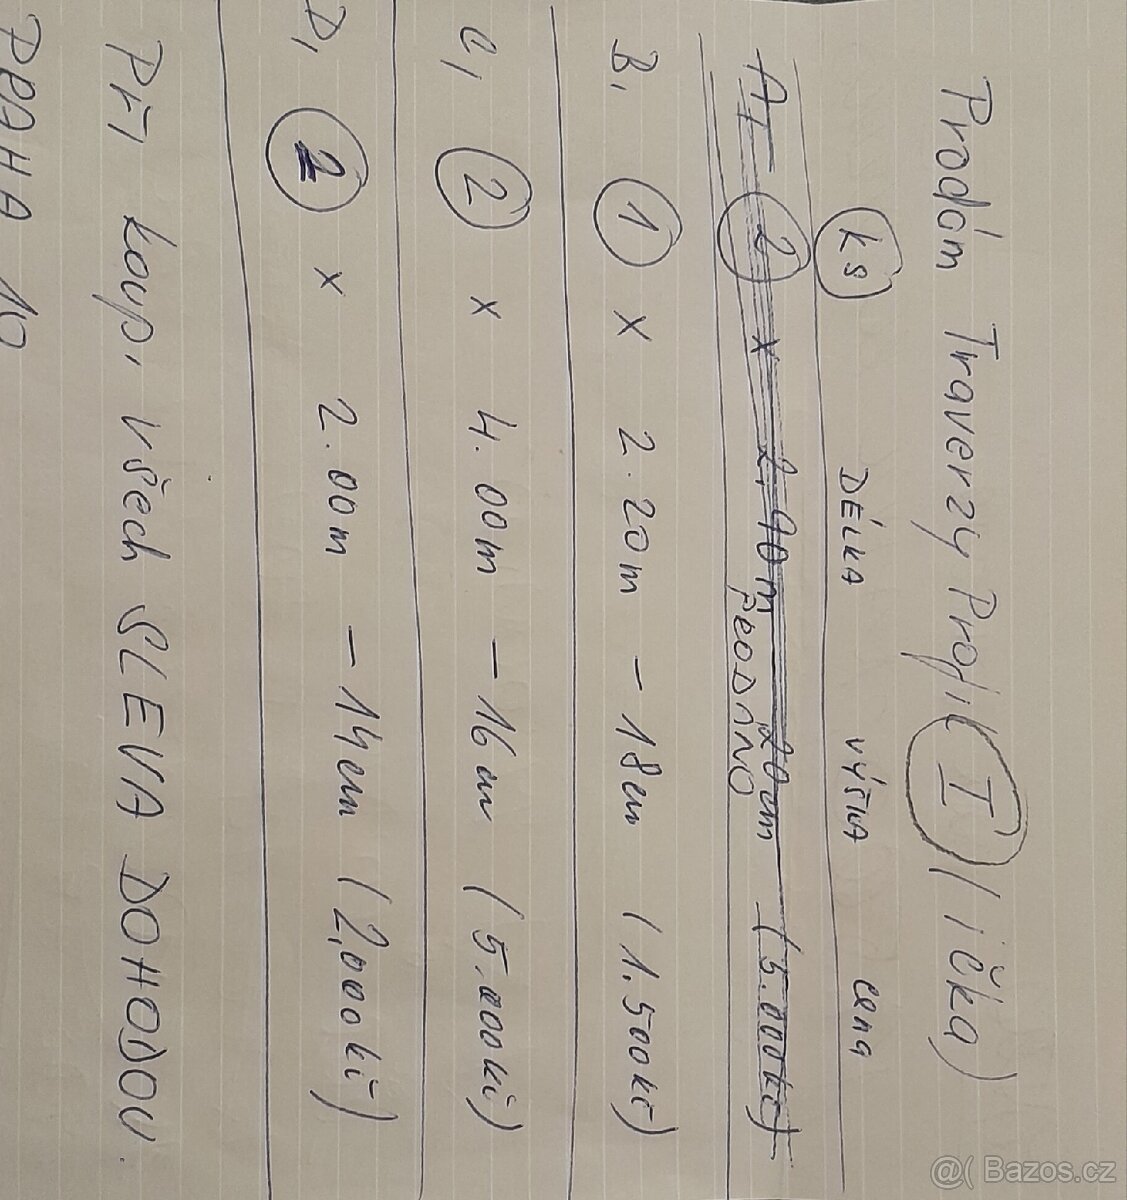 Prodám Traverzy Profil I (ička)
ks DÉLKA VÝŠKA cena
A, 2 x 2,90m 20cm (5.000kč)
PRODÁNO
B, 1 x 2.20m - 18cm (1.500kč)
C, 2 x 4.00m - 16cm (5.000kč)
D, 2 x 2.00m - 14cm (2,000kč)
Při koupi všech SLEVA DOHODOU.
PRAHA 10
@( Bazos.cz